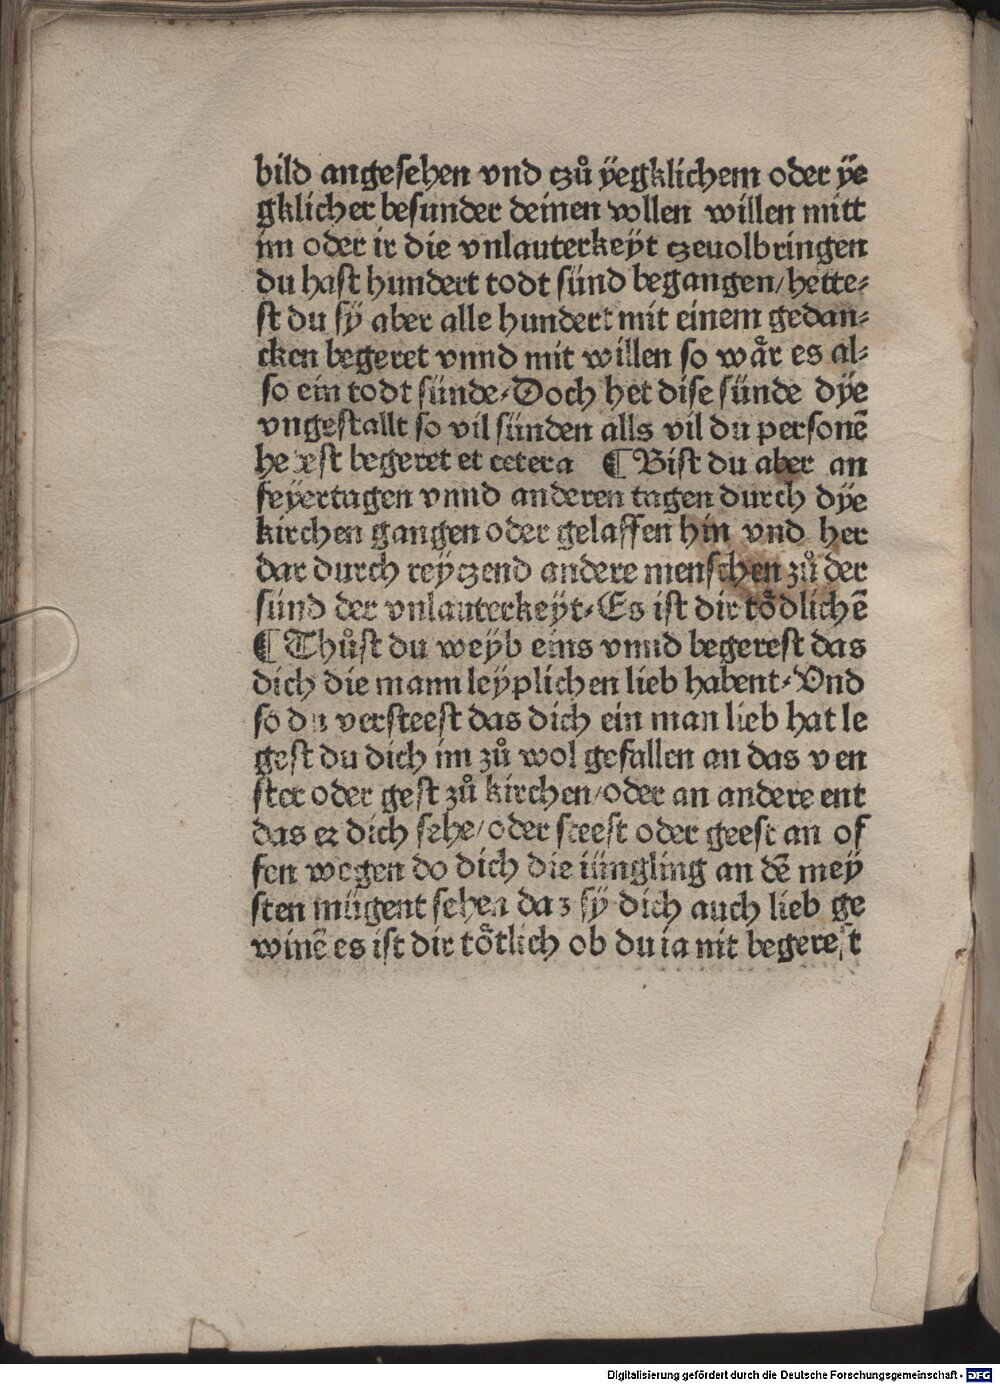 bild angesehen vnd czů ÿegklichem oder ÿe
gklicher besunder deinen vollen willen mitt
im oder ir die vnlauterkeyt czeuolbringen
du hast hundert todt sünd begangen/hette⸗
st du sÿ aber alle hundert mit einem gedan⸗
cken begeret vnnd mit willen so wår es al⸗
so ein todt sünde⸗Doch het dise sünde dÿe
vngestallt so vil sünden alls vil du personē
hetest begeret et cetera ¶ Bist du aber an
feÿertagen vnnd anderen tagen durch dÿe
kirchen gangen oder gelaffen hin vnd her
dar durch reÿczend andere menschen zů der
sünd der vnlauterkeÿt⸗Es ist dir tödlichē
¶ Thůst du weÿb eins vnnd begerest das
dich die mann leÿplichen lieb habent⸗Vnd
so du versteest das dich ein man lieb hat le
gest du dich im zů wol gefallen an das ven
ster oder gest zů kirchen/oder an andere ent
das er dich sehe/oder steest oder geest an of
fen wegen do dich die iüngling an dē meÿ
sten mügent sehen daz sÿ dich auch lieb ge
winē es ist dir tötlich ob du ia nit begerest
Digitalisierung gefördert durch die Deutsche Forschungsgemeinschaft - DFG